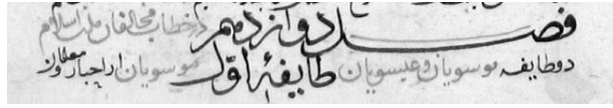 فصل دوازدهم در خطاب مخالفان ملت اسلام
دو طایفه موسویان و عیسویان طایفهٔ اول موسویان از احبار و